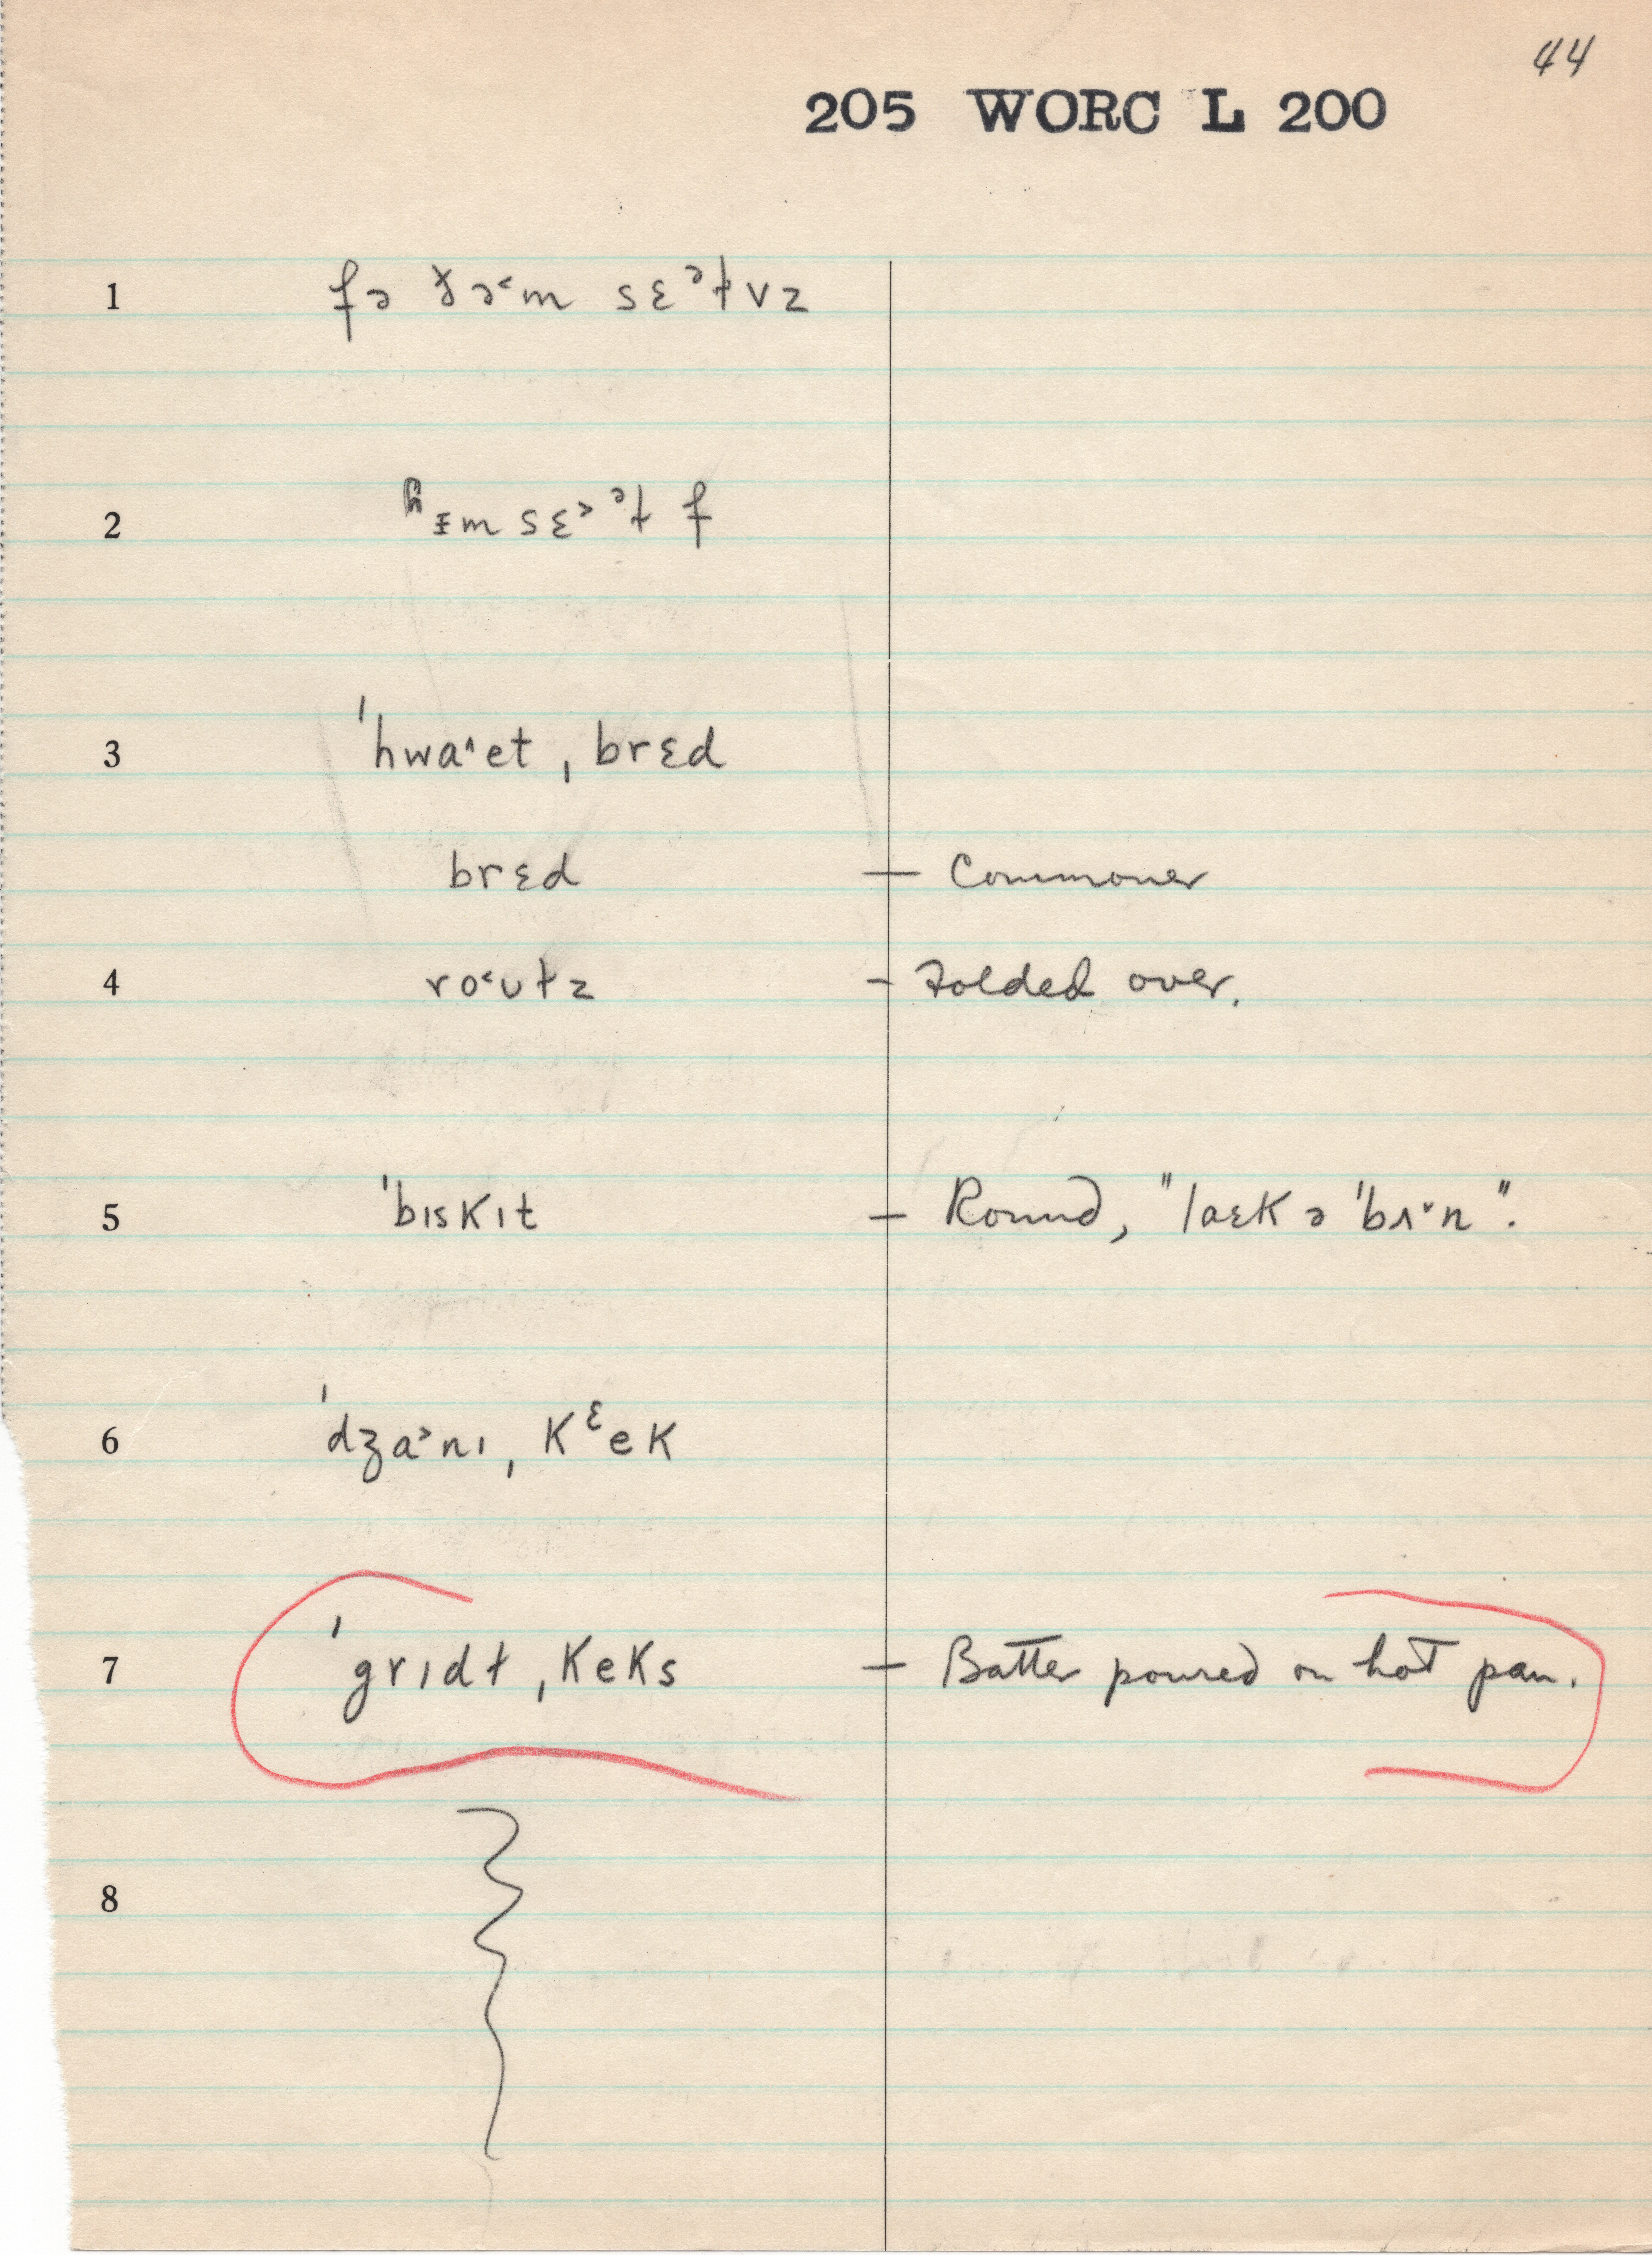 44
205 WORC L 200
1 fə ðə˂m sɛᵊɫvz
2 ɦɪm sɛ˃ᵊɫf
3 ˈhwa˄et ˌbrɛd
brɛd — Commoner
4 ro˂ʊɫz — Folded over.
5 ˈbɪskɪt — Round, "laɛk ə ˈbʌ˅n".
6 ˈdʒa˃nɪ ˌkᵋek
7 ˈgrɪdɫ ˌkeks — Batter poured on hot pan.
8